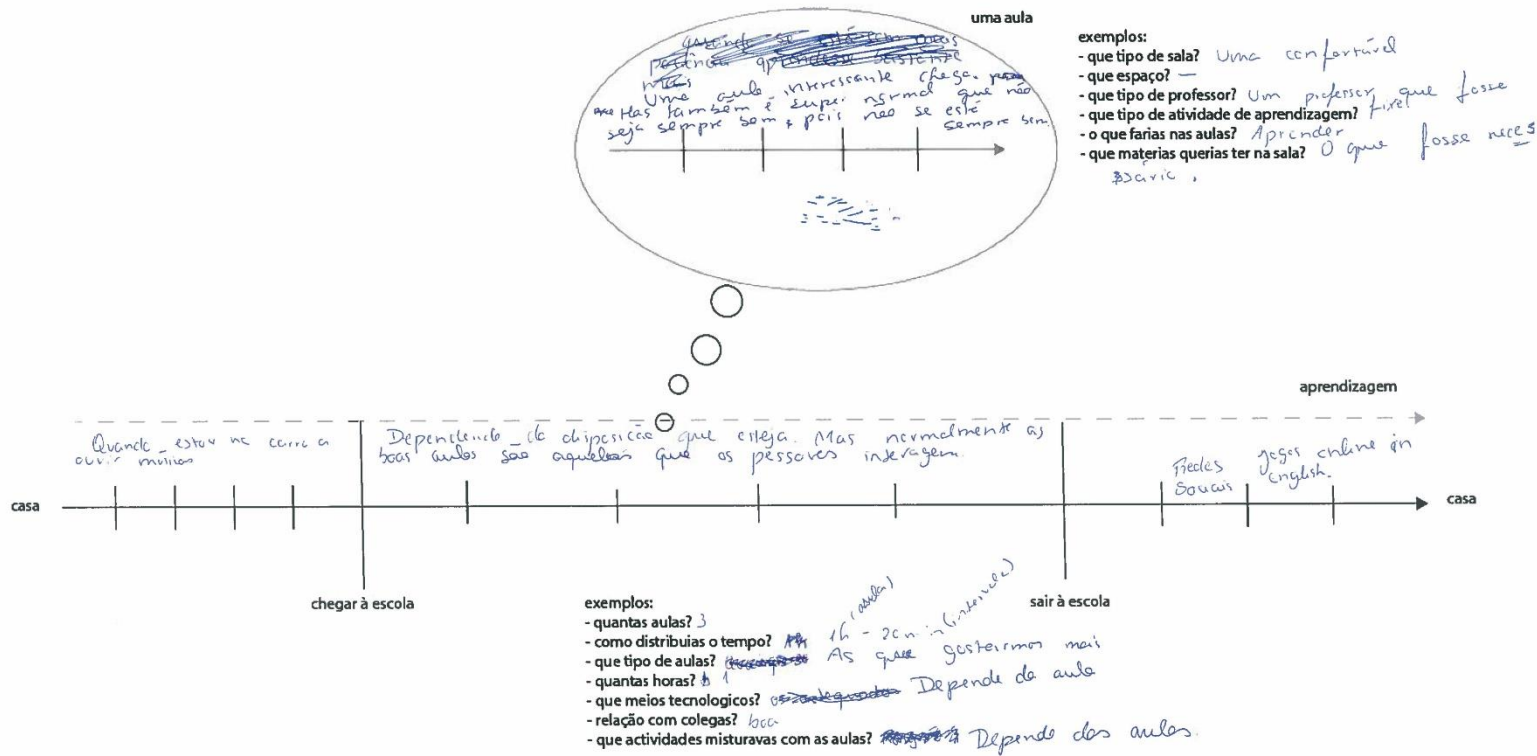 uma aula
quando se está com mais
paciência aprendesse bastante
mais
Uma aula interessante chega.
Mas também é super normal que não
seja sempre bom, pois não se está
sempre bem.
exemplos:
- que tipo de sala? Uma confortável
- que espaço? —
- que tipo de professor? Um professor que fosse
fixe!
- que tipo de atividade de aprendizagem?
- o que farias nas aulas? Aprender
- que materias querias ter na sala? O que fosse neces
sário.
aprendizagem
Quando estou no carro a
ouvir música
Dependendo da disposição que esteja. Mas normalmente as
boas aulas são aquelas que os pessoves interagem.
Redes
Sociais
jogos online in
english.
casa
casa
chegar à escola
sair à escola
exemplos:
- quantas aulas? 3
- como distribuias o tempo? 1h (aula) - 20 min (intervalo)
- que tipo de aulas? As que gosteirmos mais
- quantas horas? 1
- que meios tecnologicos? os adequados Depende da aula
- relação com colegas? boa
- que actividades misturavas com as aulas? Depende das aulas.